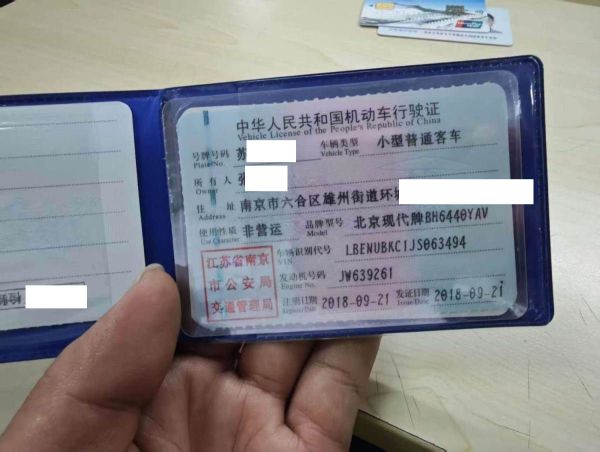 中华人民共和国机动车行驶证
Vehicle License of the People's Republic of China
号牌号码 苏 车辆类型 小型普通客车
Plate No. Vehicle Type
所有人 张
Owner
住址 南京市六合区雄州街道环城
Address
使用性质 非营运 品牌型号 北京现代牌BH6440YAV
Use Character Model
江苏省南京
市公安局
交通管理局
车辆识别代号 LBENUBKC1JS063494
VIN
发动机号码 JW639261
Engine No.
注册日期 2018-09-21 发证日期 2018-09-21
Register Date Issue Date